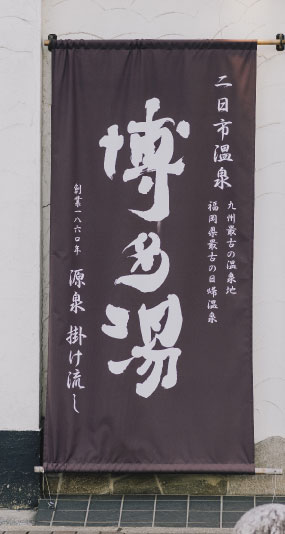 二日市温泉
九州最古の温泉地
福岡県最古の日帰温泉
博多湯
創業一八六〇年
源泉 掛け流し